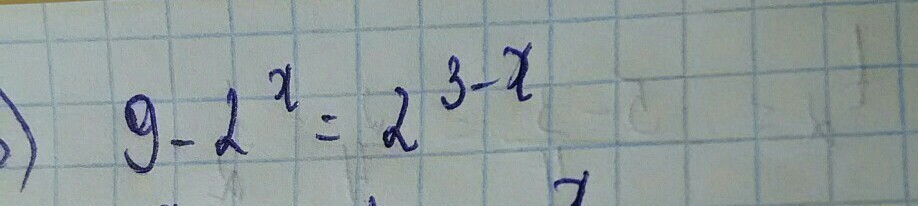 ) 9 - 2^x = 2^{3-x}
x